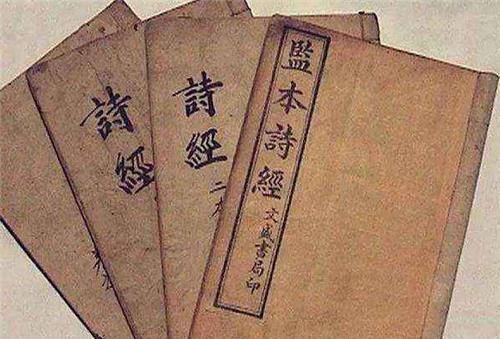 監本詩經
文盛書局印
詩經
二本
詩經